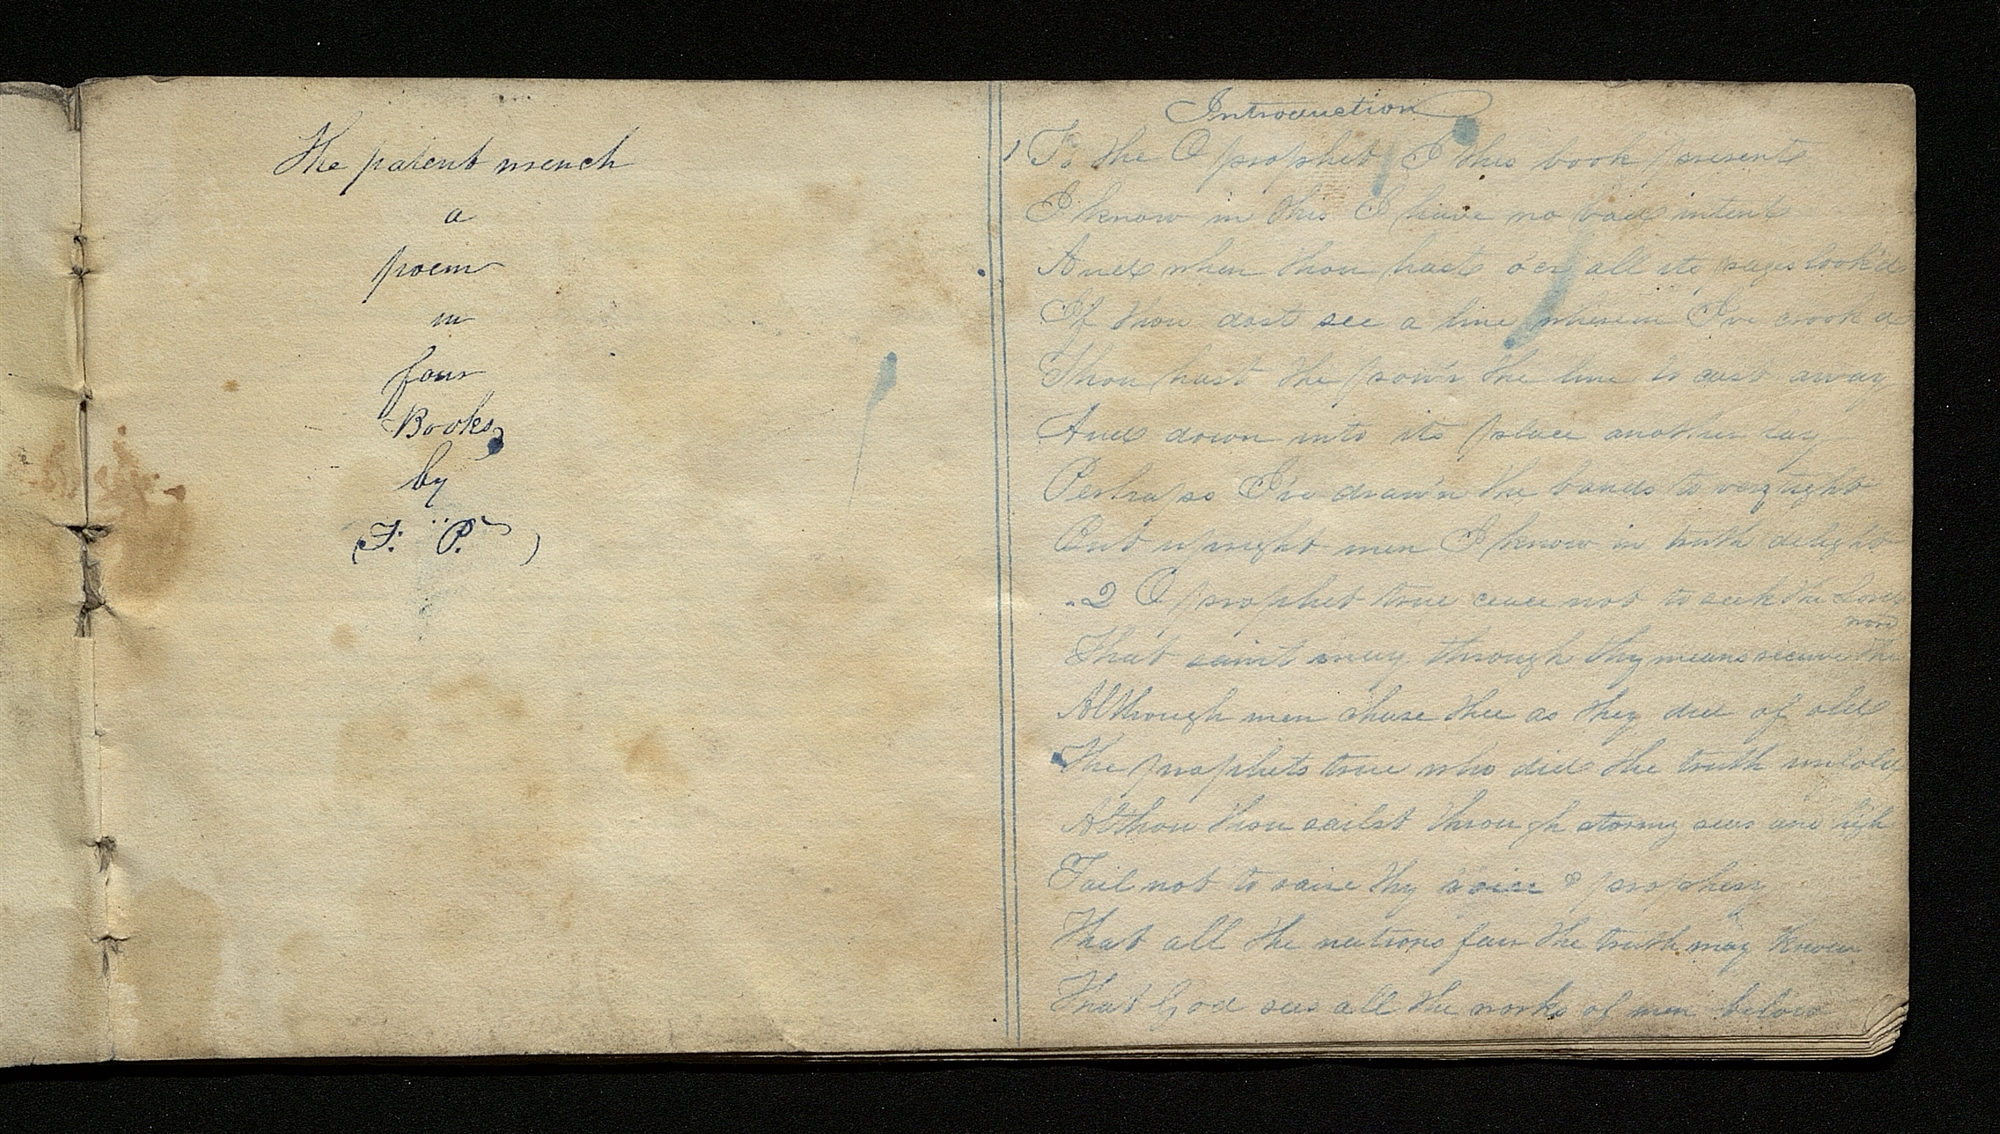 The patent wrench
a
poem
in
four
Books
by
(F. P.)
Introduction
1 To the O prophet I this book present
I know in this I have no bad intent
And when thou hast o'er all its pages look'd
If thou dost see a line wherein I've crook'd
Thou hast the pow'r the line to cast away
And down into its place another lay
Perhaps I've draw'n the bands to very tight
But upright men I know in truth delight
2 O prophet true cease not to seek the Lord
That saint may through thy means receive the word
Although men abuse thee as they did of old
The prophets true who did the truth unfold
Althou thou sailst through stormy seas and high
Fail not to raise thy voice & prophesy
That all the nations far the truth may know
That God sees all the works of men below